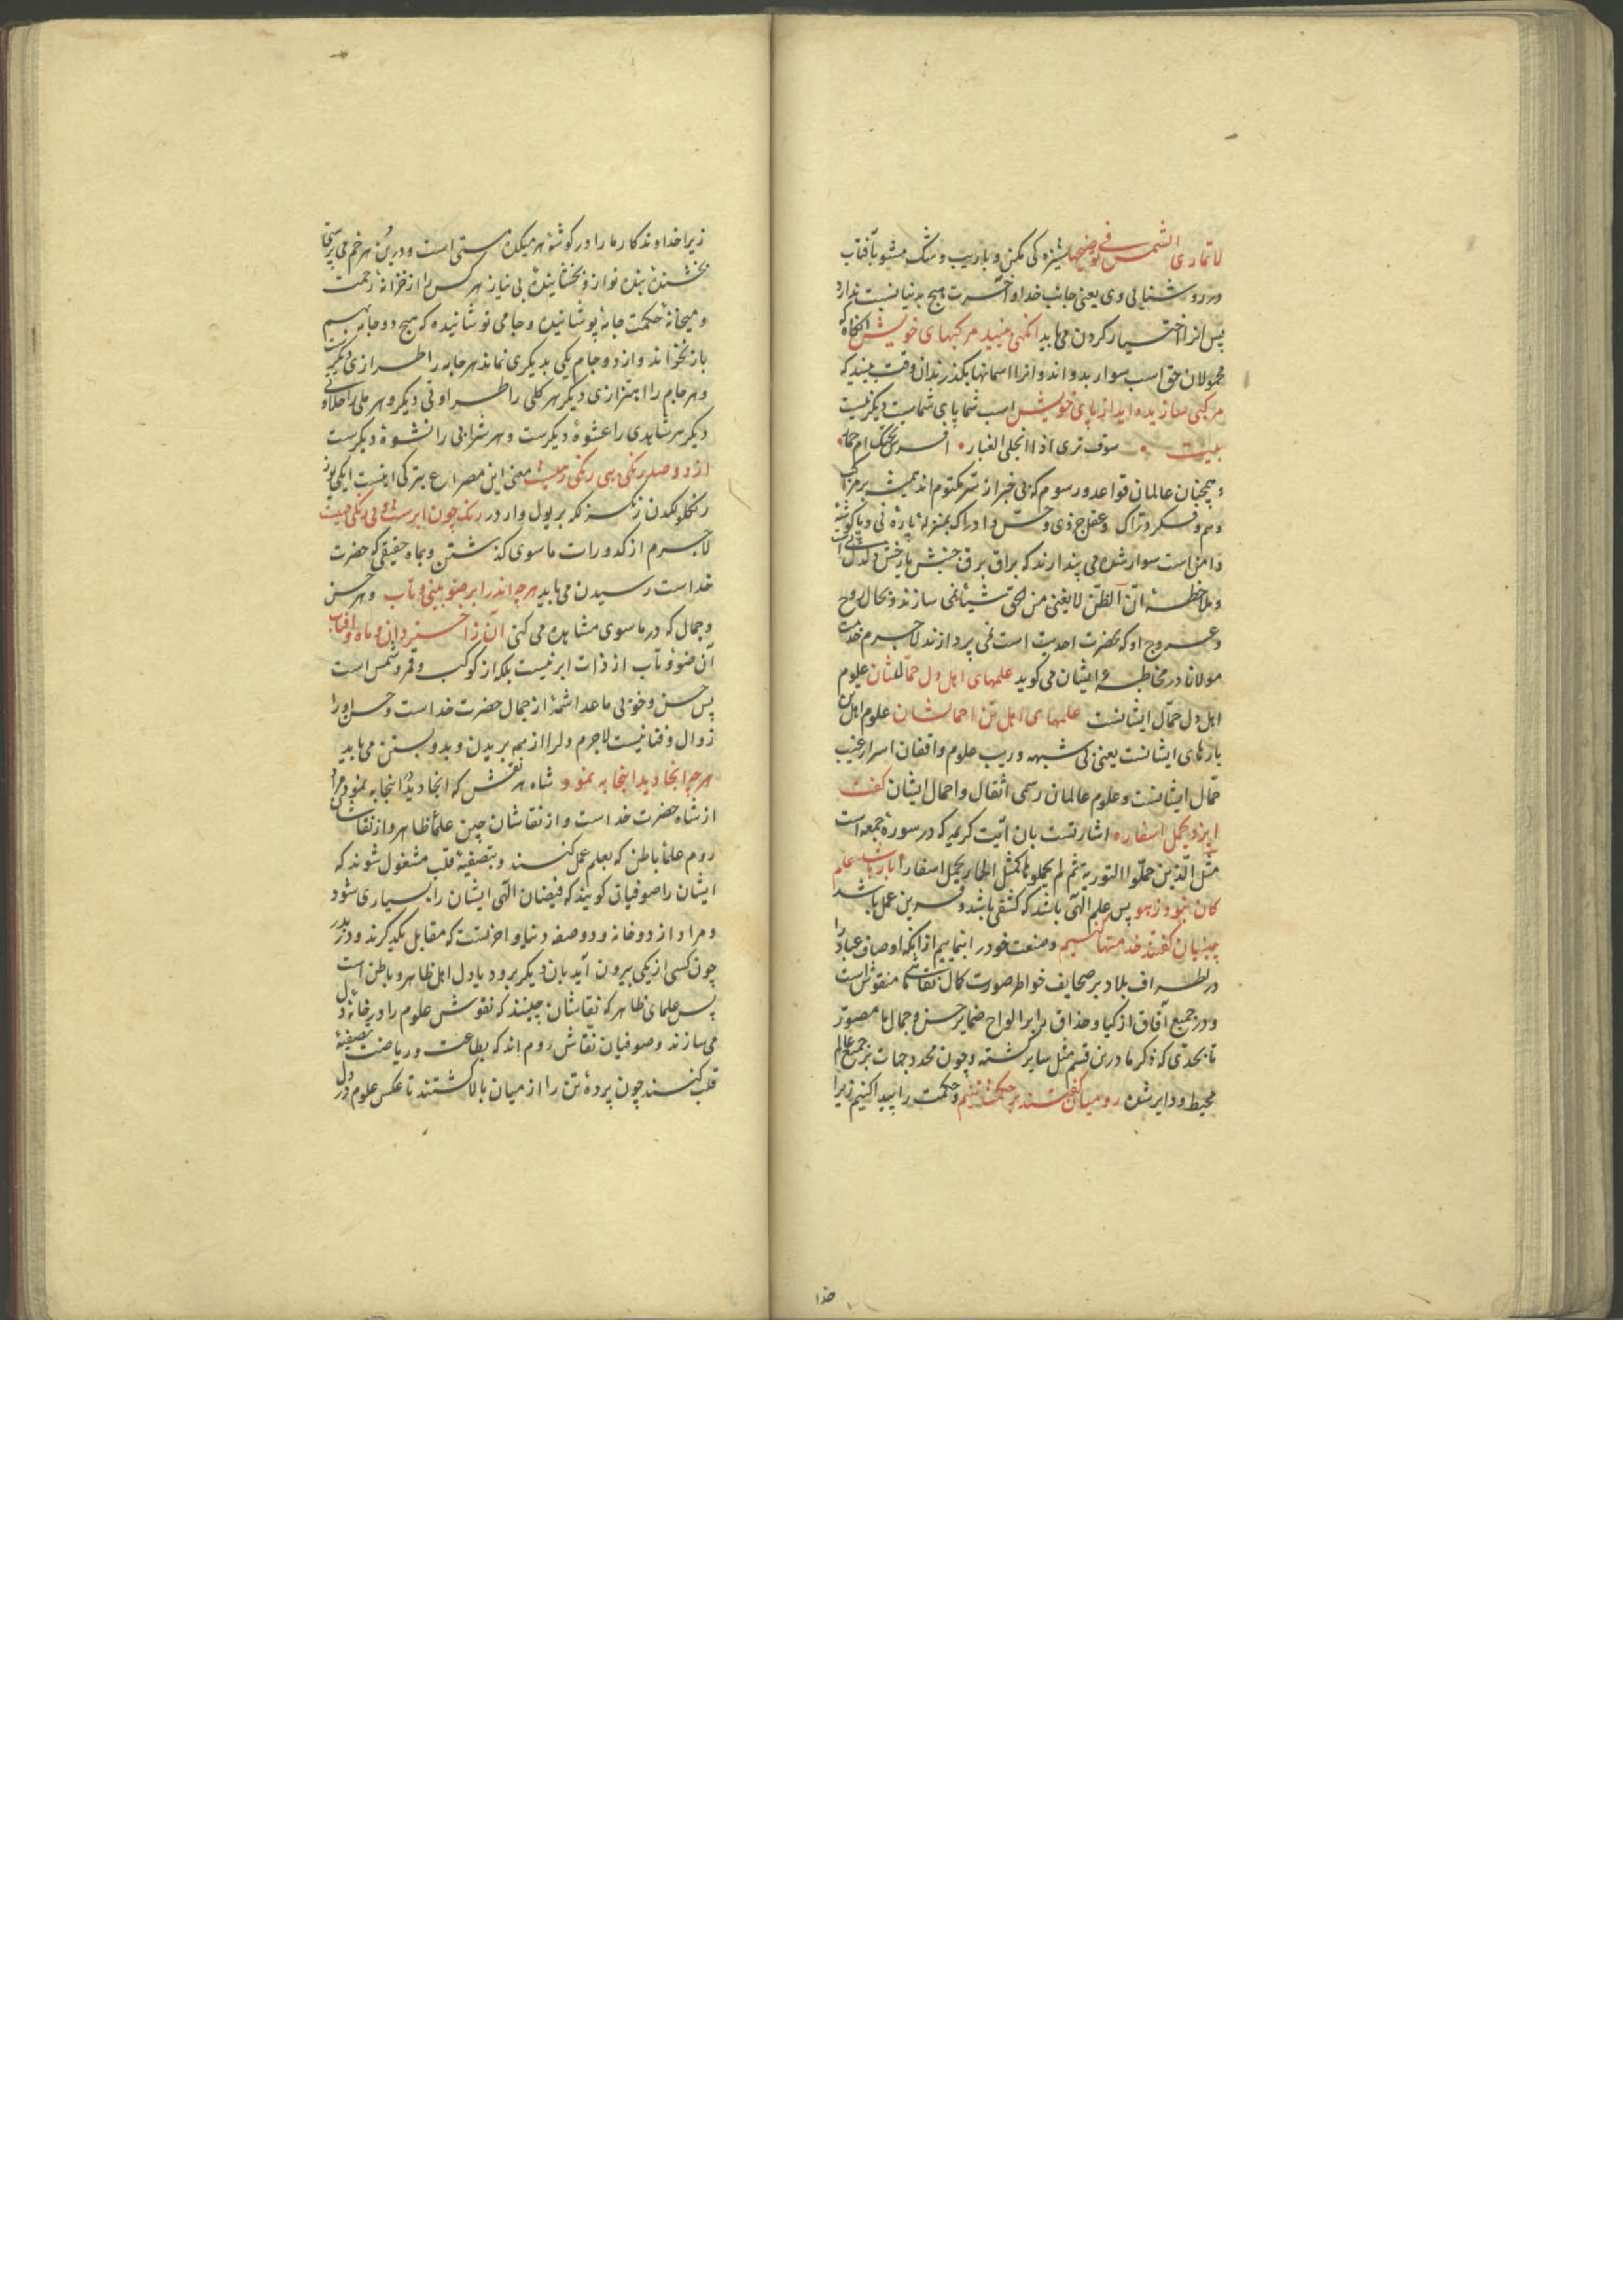 لا تماری الشمس فی توضیحها ستیزه کی مکن و با ریب و شک مشو بآفتاب
در روشنایی وی یعنی جانب خدا و آخرت هیچ بدنیا نسبت ندارد
پس انرا اختیار کردن می باید انکهی بینید مرکبهای خویش انکاه که
محمولان حق اسب سوار بدواند و انرا اسمانها بکذرند ان وقت بینید که
مرکبی سازیده اید از پای خویش اسب شما پای شماست دیکر نیست
بیت سوف تری اذا انجلی الغبار افرس تحتک ام حمار
و همچنان عالمان قواعد و رسوم که بی خبر از سر مکتوم اند همیشه بر مراکب
وهم و فکر و ادراک و عقل جزوی و حس و ادراک بمنزلهٔ پارهٔ نی و یا کوشهٔ
دامن است سوار شده می پندارند که براق برق جنبش یا رخش دلدل
و ملاحظهٔ ان الظن لا یغنی من الحق شیئا نمی سازند و بحال روح
و عروج او که بحضرت احدیت است نمی پردازند لاجرم حضرت
مولانا در مخاطبهٔ ایشان می کوید علمهای اهل دل حمالشان علوم
اهل دل حمال ایشانست علمهای اهل تن احمالشان علوم اهل تن
بارهای ایشانست یعنی بی شبهه و ریب علوم واقفان اسرار غیب
حمال ایشانست و علوم عالمان رسمی اثقال و احمال ایشان کفت
ایزد یحمل اسفاره اشارتست بان آیت کریمه که در سورهٔ جمعه است
مثل الذین حملوا التوریة ثم لم یحملوها کمثل الحمار یحمل اسفارا بار باشد علم
کان نبود ز هو پس علم الهی باشد که کشفی باشد و قرین عمل باشد
چینیان کفتند خدمتها کنیم و صنعت خود را بنماییم از انکه اوصاف عباد را
در اطراف بلاد بر صحایف خواطر صورت کمال نقاشی ما منقوش است
و در جمیع آفاق ازکیا و حذاق را بر الواح ضمایر حسن و جمال ما مصور
تا بحدی که ذکر ما درین قسم مثل سایر کشته و چون محدد جهات بر جمیع عالم
محیط و دایر شده رومیان کفتند بر حکمت تنیم و حکمت را پیدا کنیم زیرا
خدا
زیرا خداوند کار ما را در کوشهٔ هر میکده مستی است و در بن هر خم می پرستی
بخشندهٔ بنده نواز و بخشایندهٔ بی نیاز هر کس را از خزانهٔ رحمت
و میخانهٔ حکمت جامهٔ پوشانیده و جامی نوشانیده که هیچ دو جامه بهم
باز نخواند و از دو جام یکی بدیکری نماند هر جامه را طرازی دیکرست
و هر جام را اهتزازی دیکر هر کلی را طراوتی دیکر و هر ملی را حلاوتی
دیکر هر شاهدی را عشوهٔ دیکرست و هر شرابی را نشوهٔ دیکرست
از دو صد رنکی بی رنکی رهیست معنی این مصراع بترکی اینست ایکی یوز
رنکلولکدن رنکسزلکه بر یول واردر رنک چون ابرست و بی رنکی مهیست
لاجرم از کدورات ماسوی کذشتن و بماه حقیقی که حضرت
خداست رسیدن می باید هرچه اندر ابر ضو بینی و تاب و هر حسن
و جمال که در ماسوی مشاهده می کنی آن ز اختر دان و ماه و افتاب
آن ضوء و تاب از ذات ابر نیست بلکه از کوکب و قمر و شمس است
پس حسن و خوبی ماعدا شمهٔ از جمال حضرت خداست و حسن او را
زوال و فنا نیست لاجرم دل را از همه بریدن و بدو بستن می باید
هرچه انجا دید اینجا به نمود شاه هر نقش که انجا دید اینجا به نمود مراد
از شاه حضرت خداست و از نقاشان چین علماء ظاهر و از نقاشان
روم علماء باطن که بعلم عمل کنند و بتصفیهٔ قلب مشغول شوند که
ایشان را صوفیان کویند که فیضان الهی ایشان را بسیاری شود
و مراد از دو خانه و دو صفه دنیا و اخرتست که مقابل یکدیکرند و در بدر
چون کسی از یکی بیرون آید بان دیکر برود یا دل اهل ظاهر و باطن است
پس علمای ظاهر که نقاشان چینند که نقوش علوم را در خانهٔ دل
می سازند و صوفیان نقاش روم اند که بطاعت و ریاضت تصفیهٔ
قلب کنند چون پردهٔ تن را از میان بالا کشتند تا عکس علوم در دل